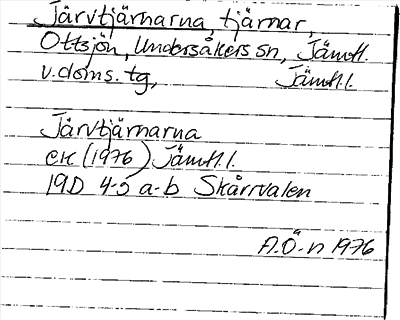 Järvtjärnarna, tjärnar,
Ottsjön, Undersåkers sn, Jämtl.
v. doms. tg, Jämtl. l.
Järvtjärnarna
EK (1976) Jämtl. l.
19D 4-5 a-b Skårrvalen
A.Ö-n 1976